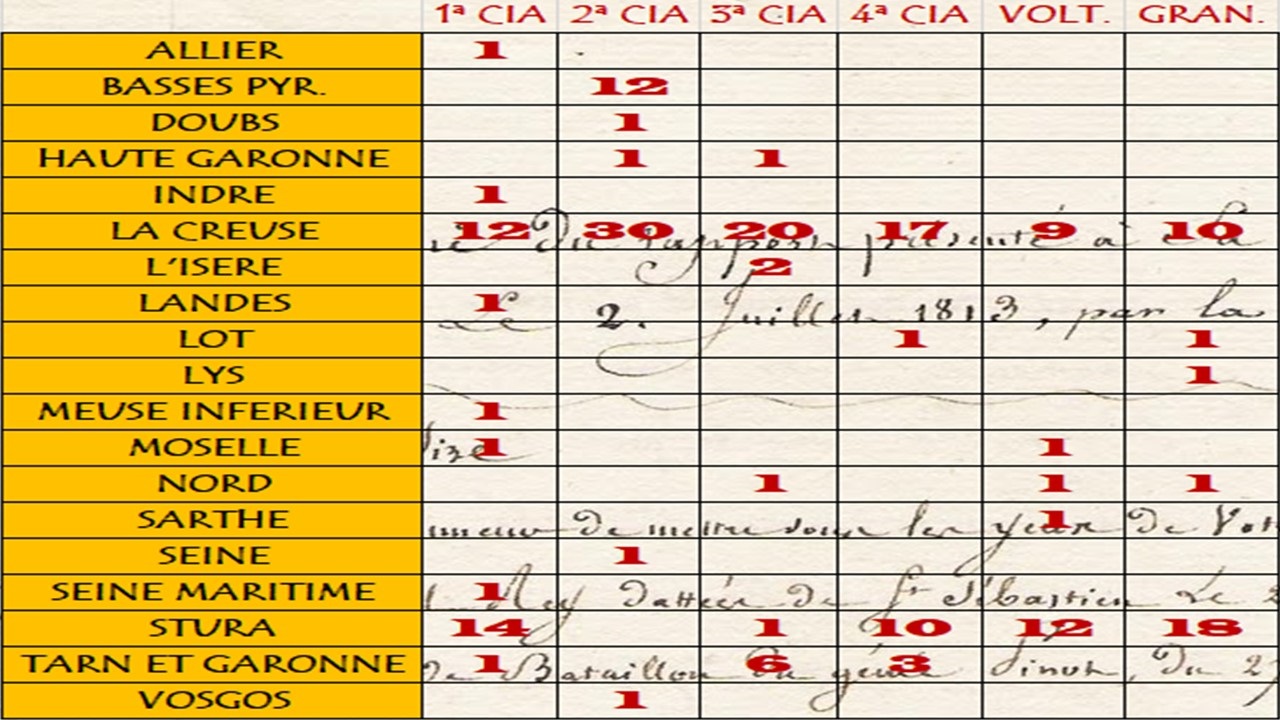 1ª CIA 2ª CIA 3ª CIA 4ª CIA VOLT. GRAN.
ALLIER 1
BASSES PYR. 12
DOUBS 1
HAUTE GARONNE 1 1
INDRE 1
LA CREUSE 12 30 20 17 9 10
Du rapport présenté à
L'ISERE 2
LANDES 1
Le 2. Juillet 1813, par la
LOT 1 1
LYS 1
MEUSE INFERIEUR 1
MOSELLE 1 1
NORD 1 1 1
SARTHE 1
de mettre sous les yeux de
SEINE 1
SEINE MARITIME 1
Rey dattée de St Sébastien Le
STURA 14 1 10 12 18
TARN ET GARONNE 1 6 3
de Bataillon du génie Pinot, Du
VOSGOS 1